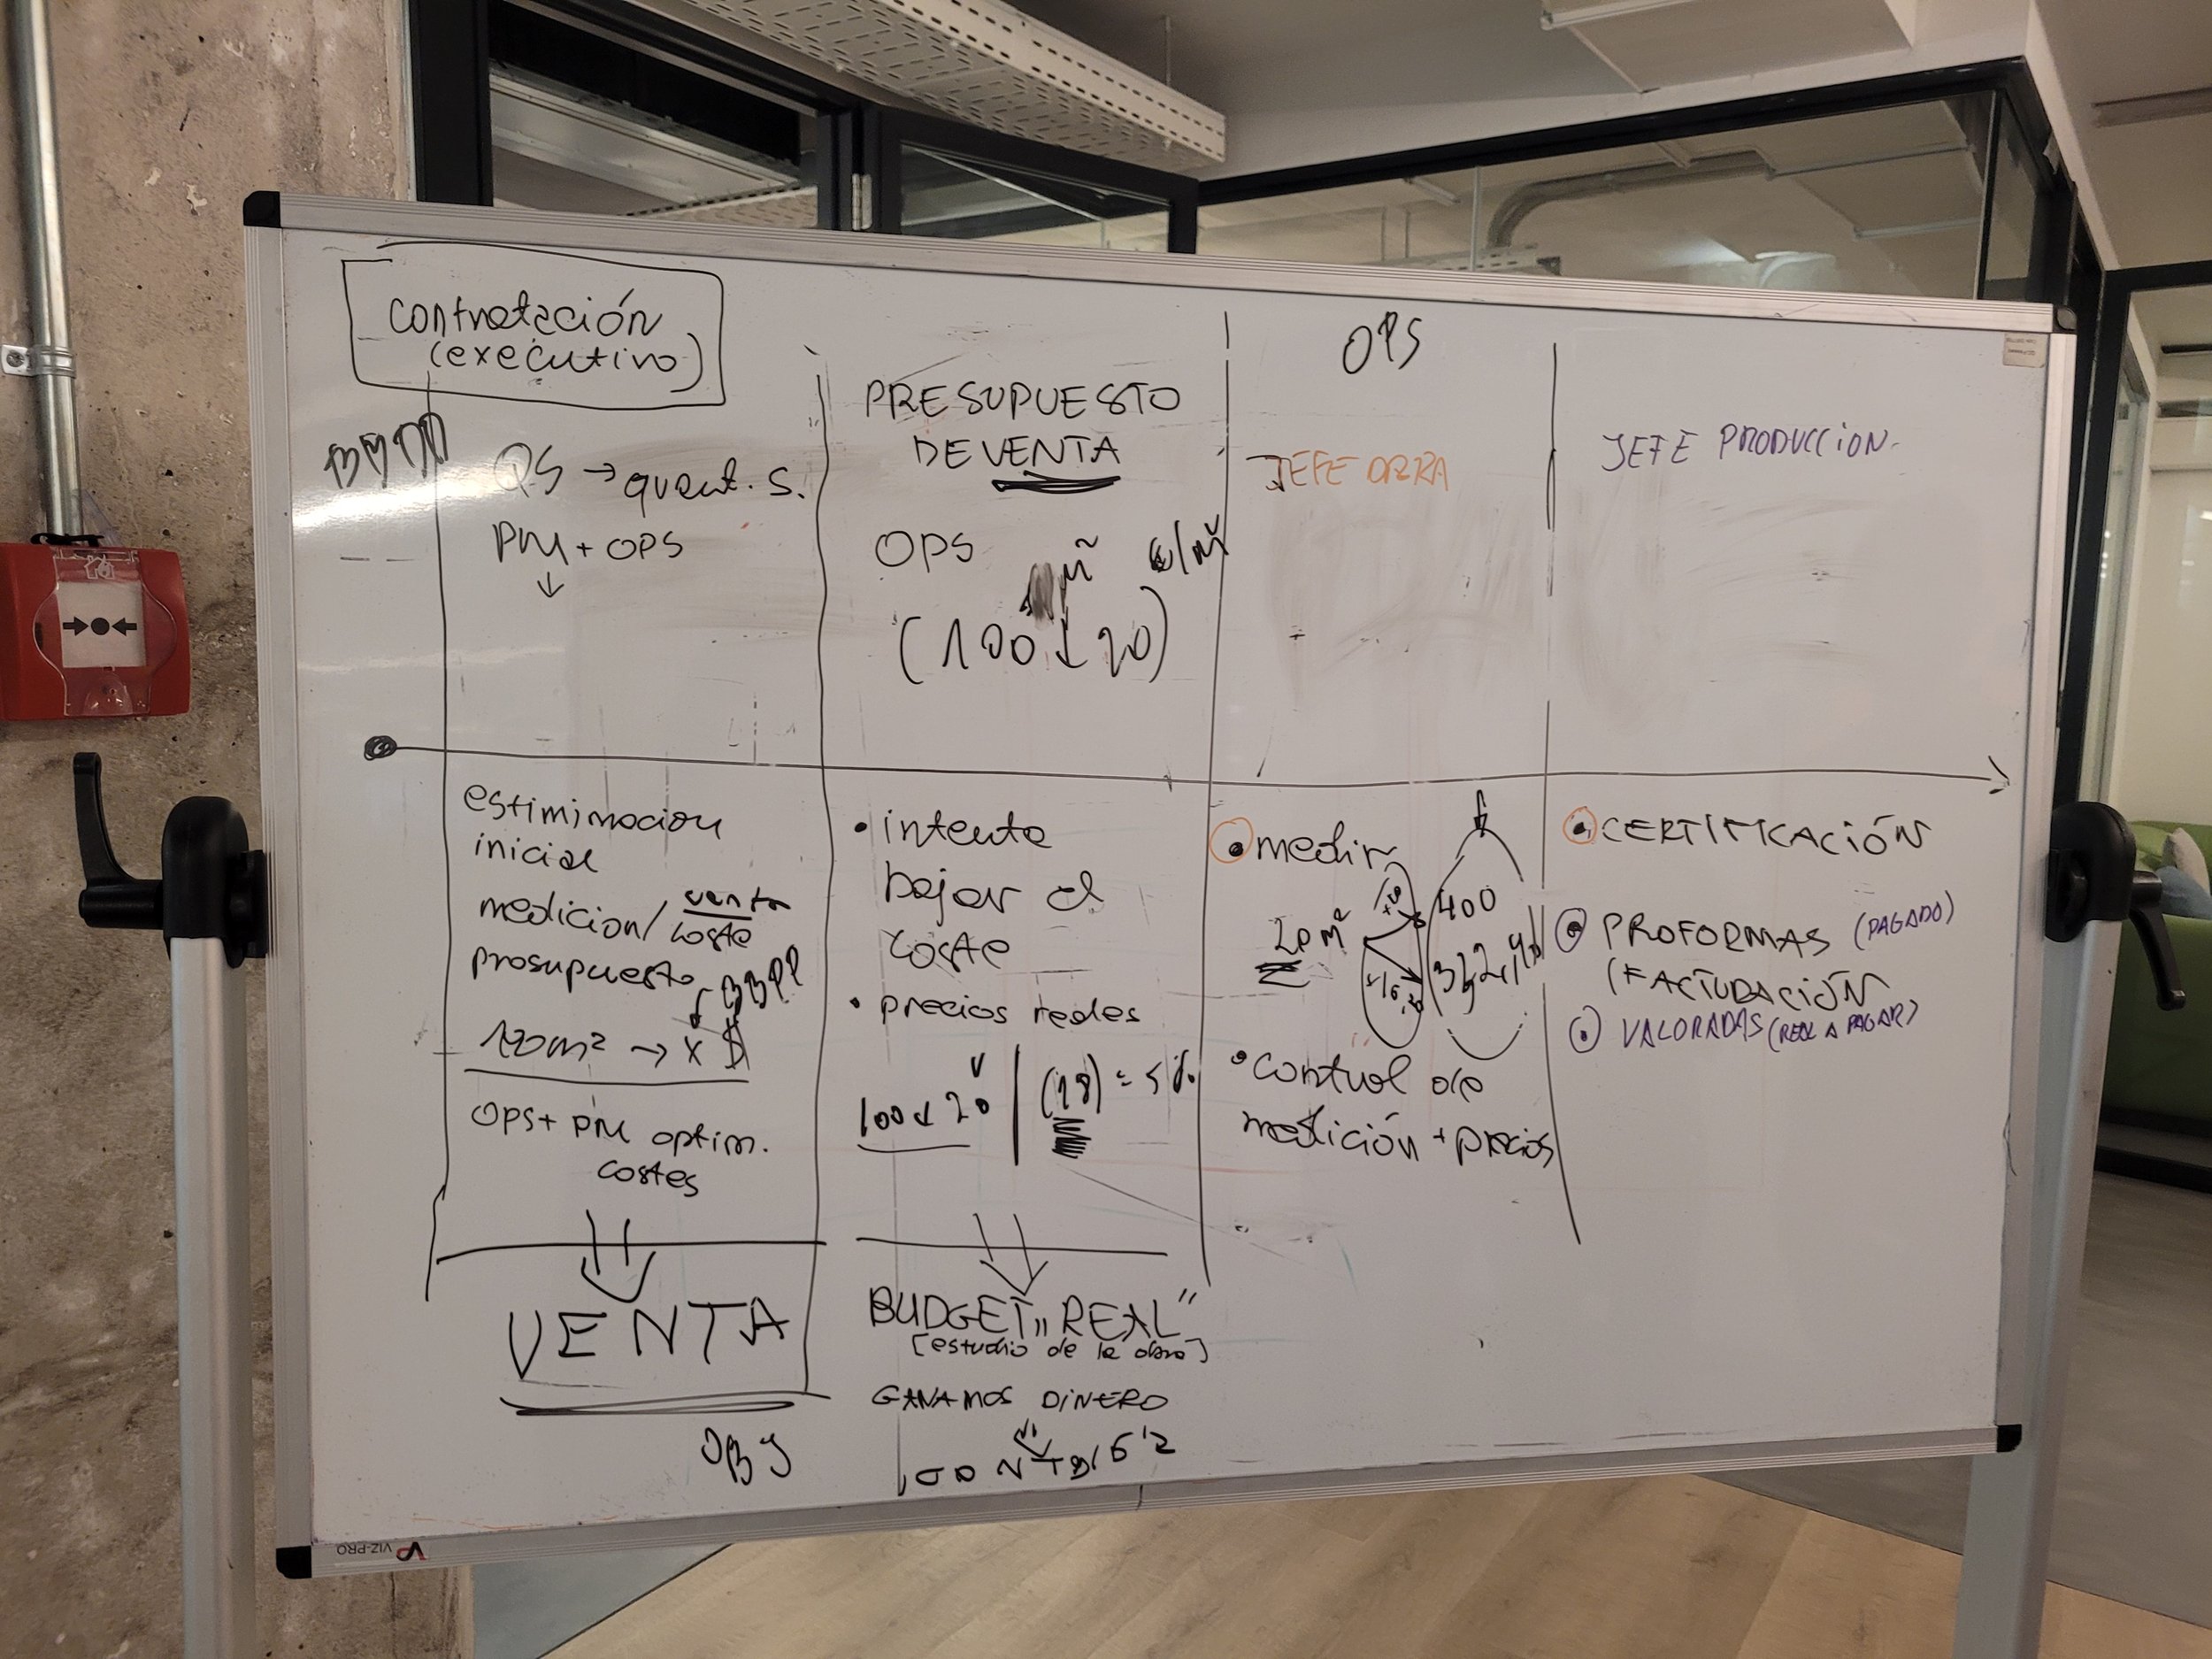 contratación
(executivo)
QS → quant. S.
PM + OPS
↓
estimimacion
inicial
medicion/ venta
coste
prosupuesto
BBPP
→ x $
OPS + PM optim.
costes
VENTA
OBJ
PRESUPUESTO
DE VENTA
OPS
(100 ↓ 20)
• intento
bajar el
coste
• precios reales
100 20 | (18) = 5%
BUDGET „REAL"
[estudio de la obra]
GANAMOS DINERO
OPS
JEFE OBRA
• medir
20 m²
400
• control de
medición + precios
JEFE PRODUCCION
• CERTIFICACIÓN
• PROFORMAS (PAGADO)
(FACTURACIÓN
• VALORADAS (REAL A PAGAR)
VIZ-PRO